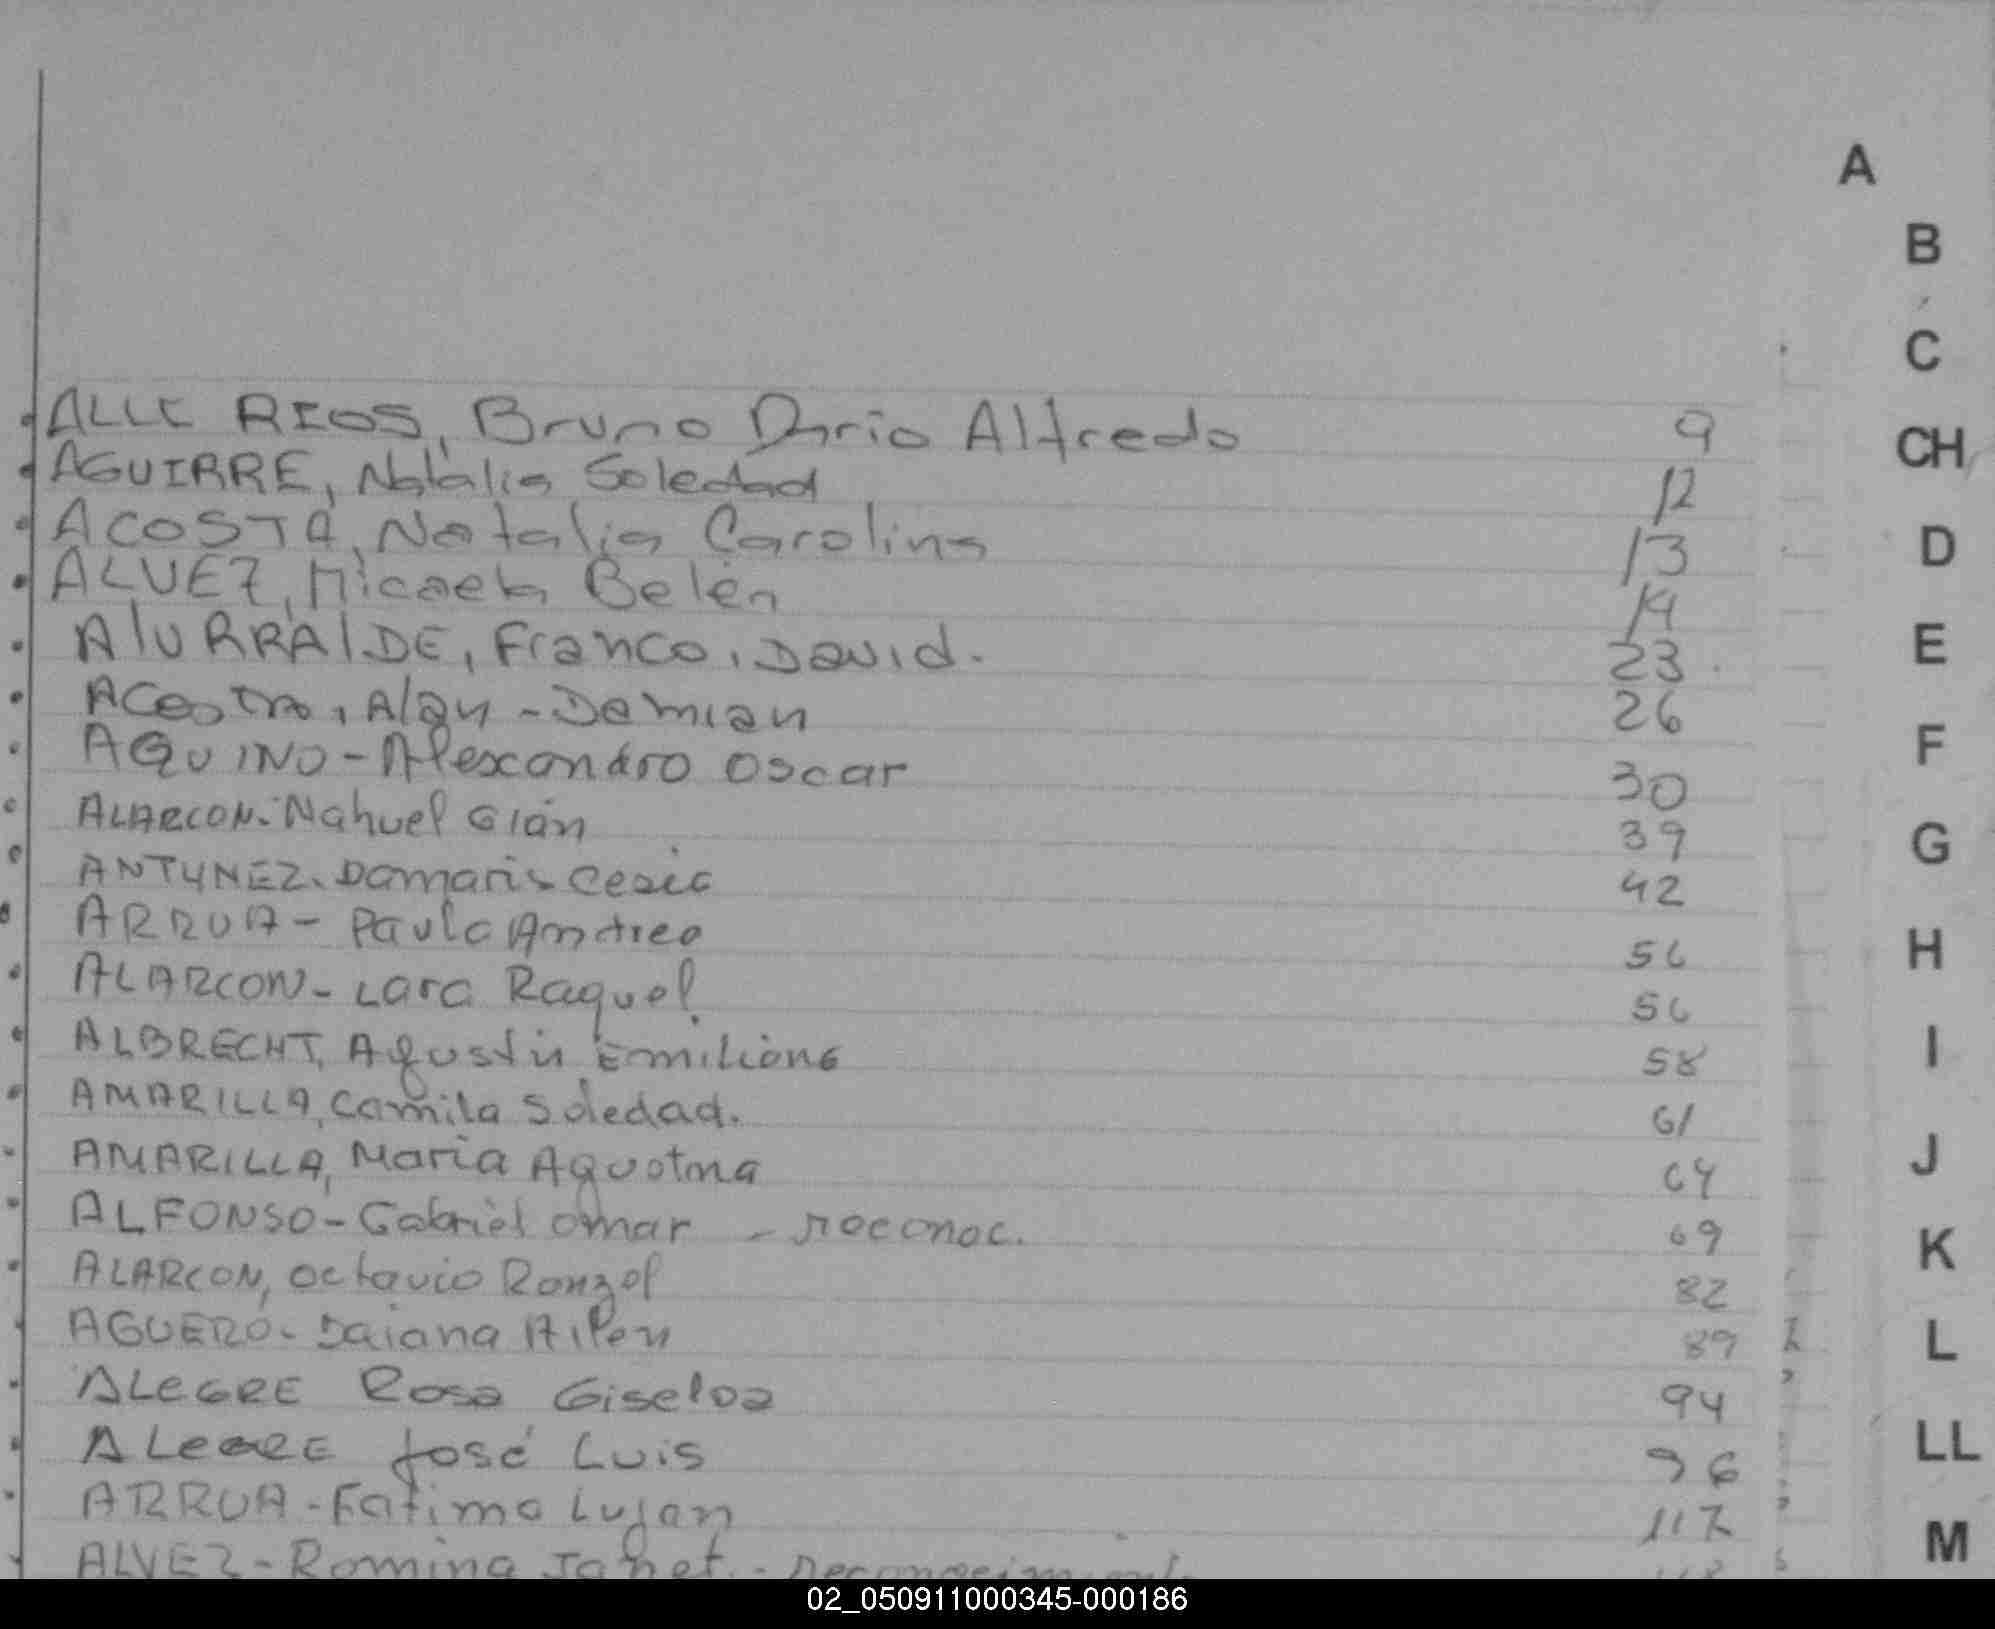 A
B
C
CH
D
E
F
G
H
I
J
K
L
LL
M
ALLE RIOS, Bruno Dario Alfredo 9
AGUIRRE, Natalia Soledad 12
ACOSTA, Natalia Carolina 13
ALVEZ, Micaela Belén 19
AlURRAlDE, Franco, David. 23
ACOSTA, Alan - Damian 26
AQUINO - Alexandro Oscar 30
ALARCON - Nahuel Gián 39
ANTUNEZ. Damaris Cesia 42
ARRUA - Paula Andrea 56
ALARCON - Lara Raquel 56
ALBRECHT, Agustin Emiliano 58
AMARILLA, Camila Soledad. 61
AMARILLA, Maria Agustina 64
ALFONSO - Gabriel Omar - reconoc. 69
ALARCON, Octavio 82
AGUERO - Daiana Ailen 89
ALEGRE Rosa 94
ALEGRE José Luis 96
ARRUA - Fatima Lujan 117
ALVEZ - Romina Janet. -
02_050911000345-000186